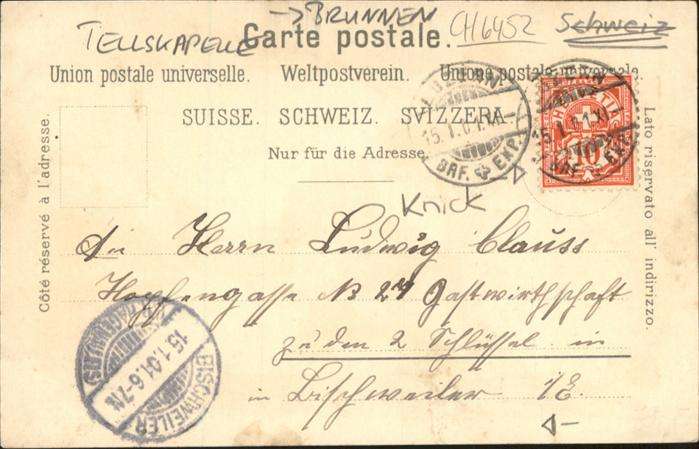 TELLSKAPELLE → BRUNNEN CH6452 Schweiz
Carte postale.
Union postale universelle. Weltpostverein. Unione postale universale.
SUISSE. SCHWEIZ. SVIZZERA.
Nur für die Adresse.
Côté réservé à l'adresse.
Lato riservato all' indirizzo.
LUZERN
15.I.01.XI-
BRF. EXP.
10
Knick
An Herrn Ludwig Clauss
Hopfengasse N 27 Gastwirthschaft
zu den 2 Schlüssel in
in Bischweiler i/E.
BISCHWEILER
15.1.01.6-7N